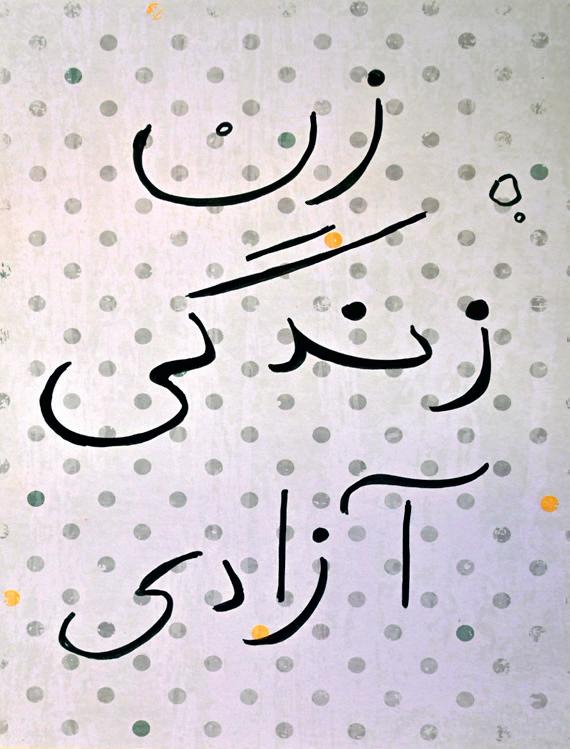 زن
زندگی
آزادی